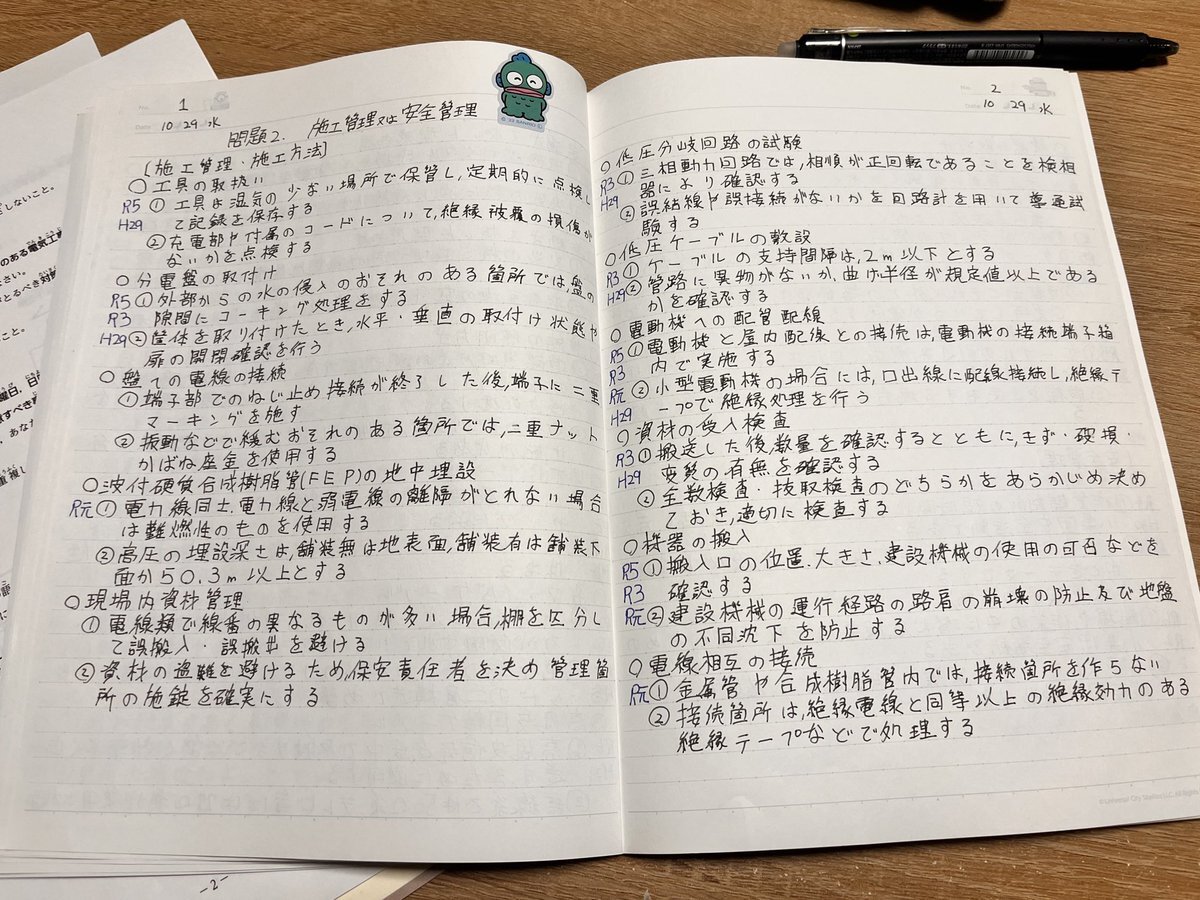 1
10 29 水
問題2. 施工管理又は安全管理
[施工管理・施工方法]
○工具の取扱い
R5 ①工具は湿気の少ない場所で保管し,定期的に点検し
H29 て記録を保存する
②充電部や付属のコードについて,絶縁被覆の損傷が
ないかを点検する
○分電盤の取付け
R5 ①外部からの水の侵入のおそれのある箇所では,盤の
R3 隙間にコーキング処理をする
H29 ②筐体を取り付けたとき,水平・垂直の取付け状態や
扉の開閉確認を行う
○盤への電線の接続
①端子部でのねじ止め接続が終了した後,端子に二重
マーキングを施す
②振動などで緩むおそれのある箇所では,二重ナット
かばね座金を使用する
○波付硬質合成樹脂管(FEP)の地中埋設
R元 ①電力線同士,電力線と弱電線の離隔がとれない場合
は難燃性のものを使用する
②高圧の埋設深さは,舗装無は地表面,舗装有は舗装下
面から0.3m以上とする
○現場内資材管理
①電線類で線番の異なるものが多い場合,棚を区分し
て誤搬入・誤搬出を避ける
②資材の盗難を避けるため,保安責任者を決め管理箇
所の施錠を確実にする
2
10 29 水
○低圧分岐回路の試験
R3 ①三相動力回路では,相順が正回転であることを検相
H29 器により確認する
②誤結線や誤接続がないかを回路計を用いて導通試
験する
○低圧ケーブルの敷設
R3 ①ケーブルの支持間隔は,2m以下とする
H29 ②管路に異物がないか,曲げ半径が規定値以上である
かを確認する
○電動機への配管配線
R5 ①電動機と屋内配線との接続は,電動機の接続端子箱
R3 内で実施する
R元 ②小型電動機の場合には,口出線に配線接続し,絶縁テ
H29 ープで絶縁処理を行う
○資材の受入検査
R3 ①搬送した後,数量を確認するとともに,きず・破損・
H29 変質の有無を確認する
②全数検査・抜取検査のどちらかをあらかじめ決め
ておき,適切に検査する
○機器の搬入
R5 ①搬入口の位置.大きさ.建設機械の使用の可否などを
R3 確認する
R元 ②建設機械の運行経路の路肩の崩壊の防止及び地盤
の不同沈下を防止する
○電線相互の接続
R元 ①金属管や合成樹脂管内では,接続箇所を作らない
②接続箇所は,絶縁電線と同等以上の絶縁効力のある
絶縁テープなどで処理する
-2-